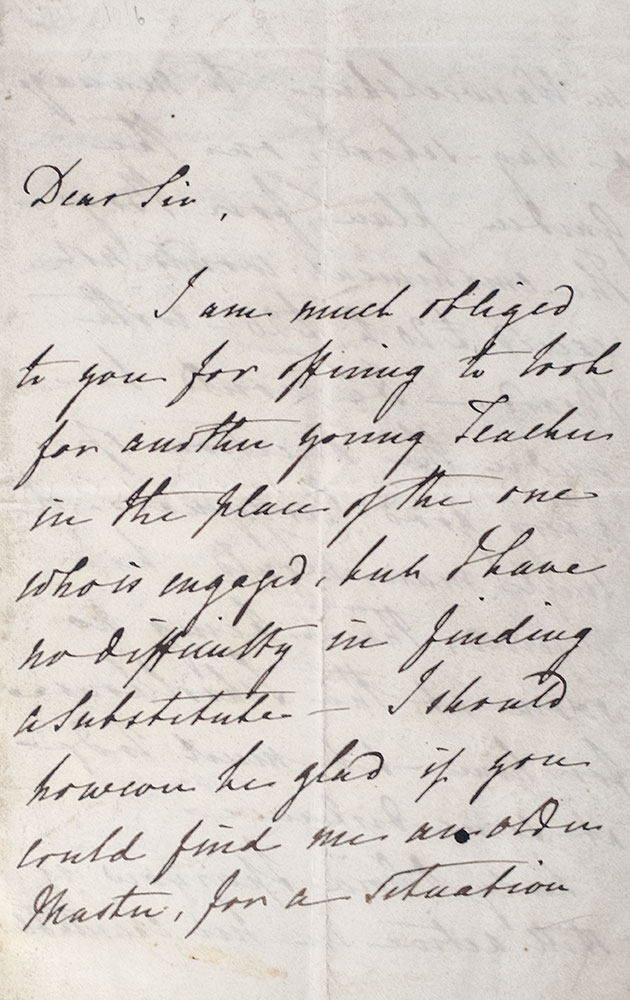 Dear Sir,
I am much obliged
to you for offering to look
for another young Teacher
in the place of the one
who is engaged, but I have
no difficulty in finding
a substitute – I should
however be glad if you
could find me an older
Master, for a situation